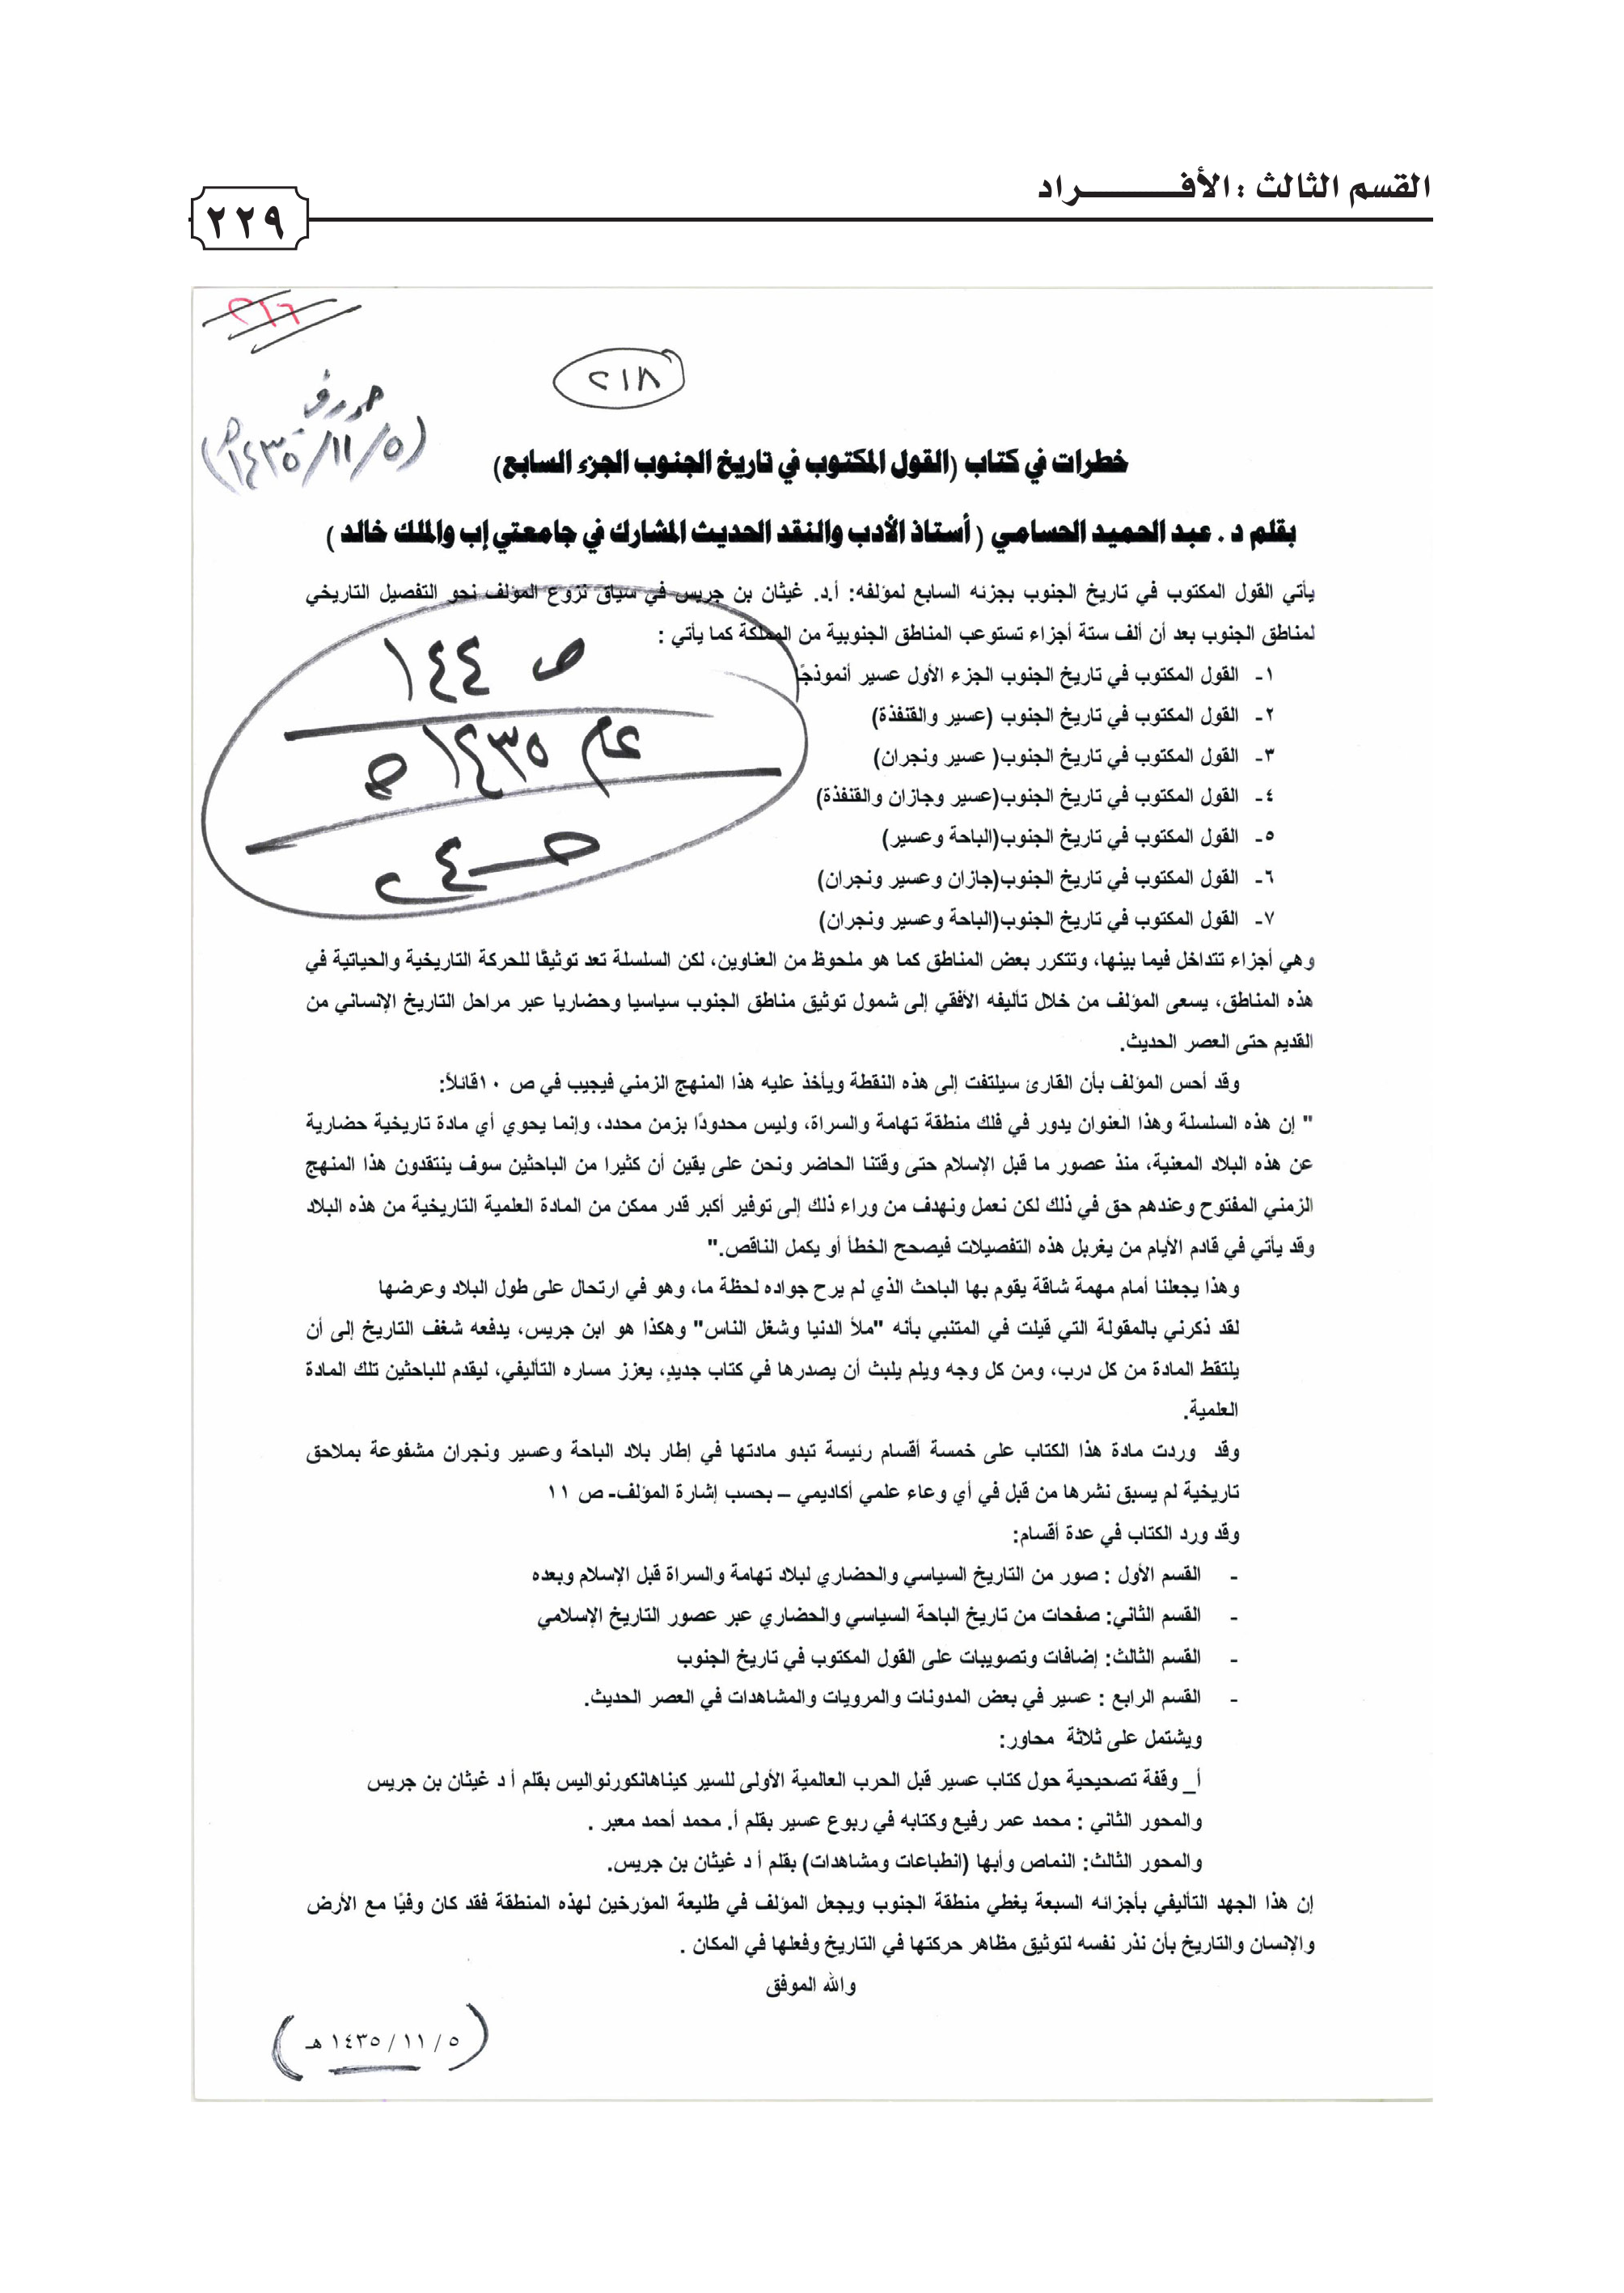 القسم الثالث : الأفـــــــــراد
٢٢٩
٢١٦
٢١٨
(٥/١١/١٤٣٥هـ)
خطرات في كتاب (القول المكتوب في تاريخ الجنوب الجزء السابع)
بقلم د . عبد الحميد الحسامي ( أستاذ الأدب والنقد الحديث المشارك في جامعتي إب والملك خالد )
يأتي القول المكتوب في تاريخ الجنوب بجزئه السابع لمؤلفه: أ.د. غيثان بن جريس في سياق نزوع المؤلف نحو التفصيل التاريخي
لمناطق الجنوب بعد أن ألف ستة أجزاء تستوعب المناطق الجنوبية من المملكة كما يأتي :
١- القول المكتوب في تاريخ الجنوب الجزء الأول عسير أنموذجًا
٢- القول المكتوب في تاريخ الجنوب (عسير والقنفذة)
٣- القول المكتوب في تاريخ الجنوب( عسير ونجران)
٤- القول المكتوب في تاريخ الجنوب(عسير وجازان والقنفذة)
٥- القول المكتوب في تاريخ الجنوب(الباحة وعسير)
٦- القول المكتوب في تاريخ الجنوب(جازان وعسير ونجران)
٧- القول المكتوب في تاريخ الجنوب(الباحة وعسير ونجران)
ص ١٤٤
عام ١٤٣٥ هـ
وهي أجزاء تتداخل فيما بينها، وتتكرر بعض المناطق كما هو ملحوظ من العناوين، لكن السلسلة تعد توثيقًا للحركة التاريخية والحياتية في
هذه المناطق، يسعى المؤلف من خلال تأليفه الأفقي إلى شمول توثيق مناطق الجنوب سياسيا وحضاريا عبر مراحل التاريخ الإنساني من
القديم حتى العصر الحديث.
وقد أحس المؤلف بأن القارئ سيلتفت إلى هذه النقطة ويأخذ عليه هذا المنهج الزمني فيجيب في ص ١٠قائلاً:
" إن هذه السلسلة وهذا العنوان يدور في فلك منطقة تهامة والسراة، وليس محدودًا بزمن محدد، وإنما يحوي أي مادة تاريخية حضارية
عن هذه البلاد المعنية، منذ عصور ما قبل الإسلام حتى وقتنا الحاضر ونحن على يقين أن كثيرا من الباحثين سوف ينتقدون هذا المنهج
الزمني المفتوح وعندهم حق في ذلك لكن نعمل ونهدف من وراء ذلك إلى توفير أكبر قدر ممكن من المادة العلمية التاريخية من هذه البلاد
وقد يأتي في قادم الأيام من يغربل هذه التفصيلات فيصحح الخطأ أو يكمل الناقص."
وهذا يجعلنا أمام مهمة شاقة يقوم بها الباحث الذي لم يرح جواده لحظة ما، وهو في ارتحال على طول البلاد وعرضها
لقد ذكرني بالمقولة التي قيلت في المتنبي بأنه "ملأ الدنيا وشغل الناس" وهكذا هو ابن جريس، يدفعه شغف التاريخ إلى أن
يلتقط المادة من كل درب، ومن كل وجه ويلم يلبث أن يصدرها في كتاب جديدٍ، يعزز مساره التأليفي، ليقدم للباحثين تلك المادة
العلمية.
وقد وردت مادة هذا الكتاب على خمسة أقسام رئيسة تبدو مادتها في إطار بلاد الباحة وعسير ونجران مشفوعة بملاحق
تاريخية لم يسبق نشرها من قبل في أي وعاء علمي أكاديمي – بحسب إشارة المؤلف- ص ١١
وقد ورد الكتاب في عدة أقسام:
- القسم الأول : صور من التاريخ السياسي والحضاري لبلاد تهامة والسراة قبل الإسلام وبعده
- القسم الثاني: صفحات من تاريخ الباحة السياسي والحضاري عبر عصور التاريخ الإسلامي
- القسم الثالث: إضافات وتصويبات على القول المكتوب في تاريخ الجنوب
- القسم الرابع : عسير في بعض المدونات والمرويات والمشاهدات في العصر الحديث.
ويشتمل على ثلاثة محاور:
أ_ وقفة تصحيحية حول كتاب عسير قبل الحرب العالمية الأولى للسير كيناهانكورنواليس بقلم أ د غيثان بن جريس
والمحور الثاني : محمد عمر رفيع وكتابه في ربوع عسير بقلم أ. محمد أحمد معبر .
والمحور الثالث: النماص وأبها (انطباعات ومشاهدات) بقلم أ د غيثان بن جريس.
إن هذا الجهد التأليفي بأجزائه السبعة يغطي منطقة الجنوب ويجعل المؤلف في طليعة المؤرخين لهذه المنطقة فقد كان وفيًا مع الأرض
والإنسان والتاريخ بأن نذر نفسه لتوثيق مظاهر حركتها في التاريخ وفعلها في المكان .
والله الموفق
(٥ / ١١ / ١٤٣٥ هـ)